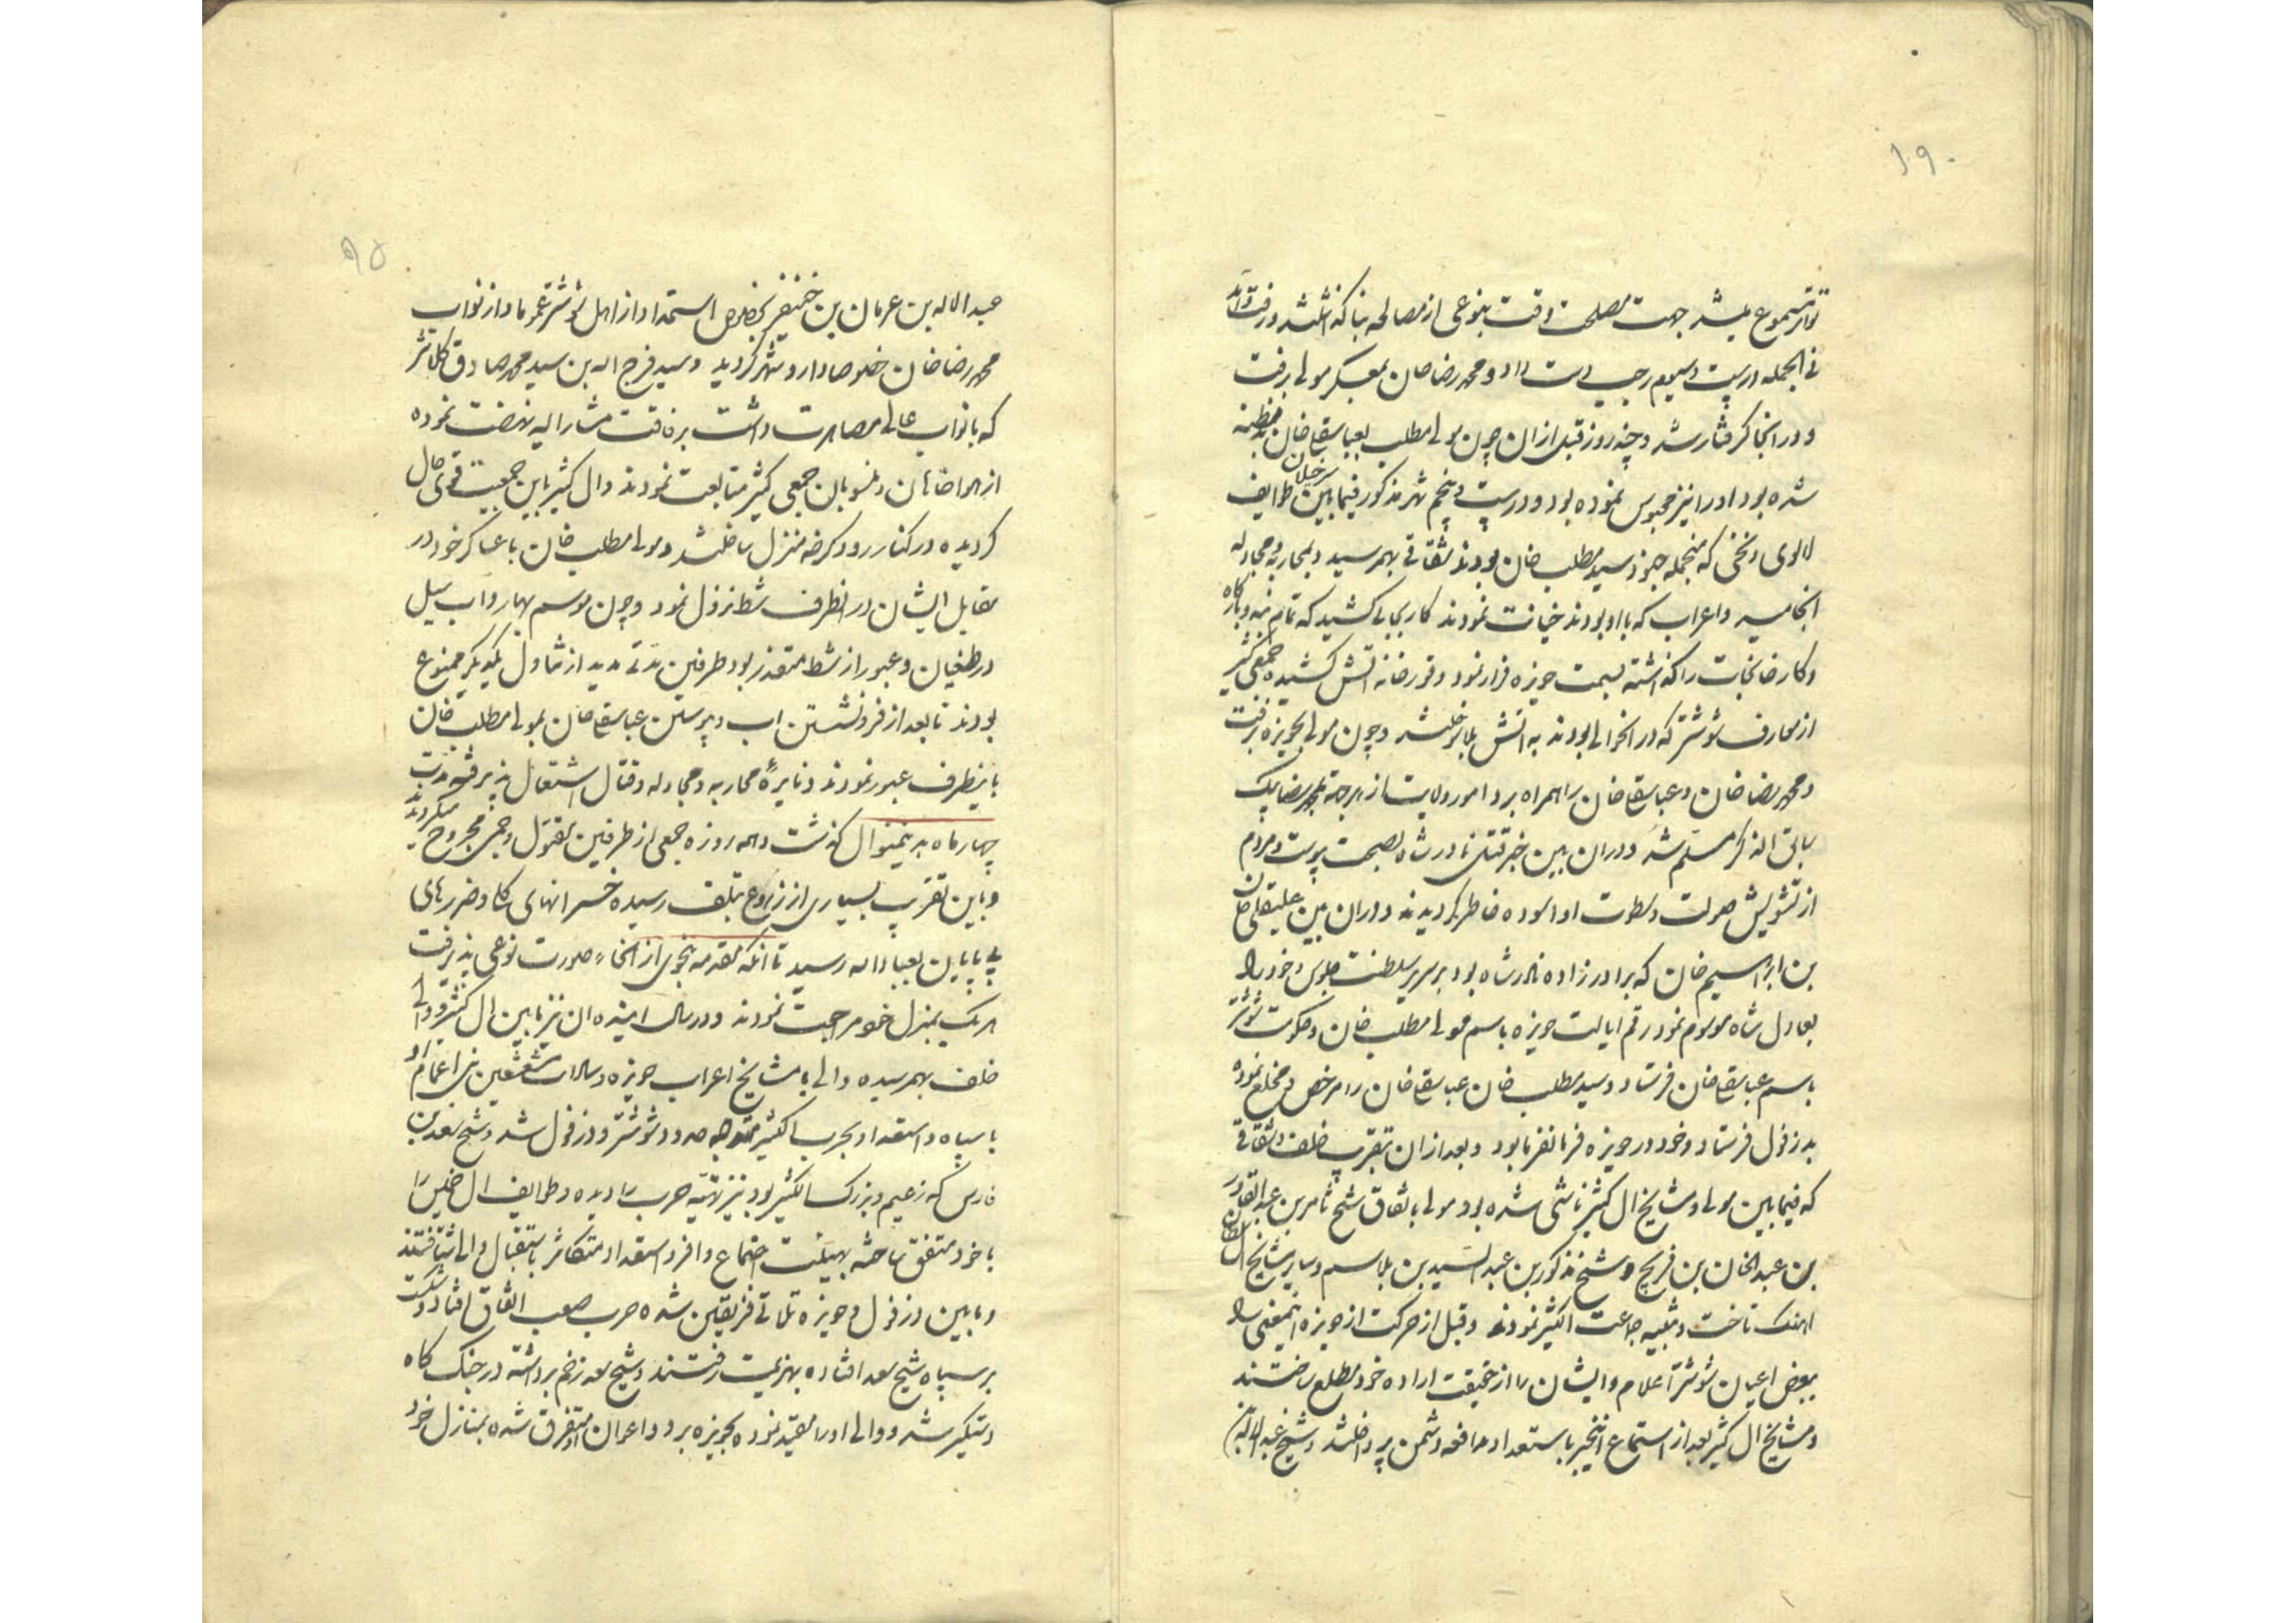 ۱۹۰
تواتر مسموع میشد جهت مصلحت وقت بنوعی از مصالحه بنا گذاشتند و رفت و آمد
فی الجمله در بیست و سیوم رجب دست داد و محمد رضا خان بمعسکر مولی رفت
و در انجا گرفتار شد و چند روز قبل از ان چون مولی مطلب بعباسقلیخان بدمظنه
شده بود او را نیز محبوس نموده بود و در بیست و پنجم شهر مذکور فیمابین طوایف
لالوی و نخی که منجمله جنود سید مطلب خان بودند نقاقی بهمرسید و بمحاربه و مجادله
انجامید و اعراب که با او بودند خیانت نمودند کار بجایی کشید که تمام بنه و بارگاه
و کارخانجات را گذاشته بسمت حویزه فرار نمود و قورخانه اتش کشیده جمعی کثیر
از معارف شوشتر که در انحوالی بودند به اتش بلا سوختند و چون مولی بحویزه رفت
و محمد رضا خان و عباسقلیخان را همراه برد امور ولایت از هر جهة بمحمد رضا بیک
سابق الذکر مسلم شد و در ان بین خبر قتل نادر شاه بصحت پیوست و مردم
از تشویش صولت و سطوت او اسوده خاطر گردیدند و در ان بین علیقلی خان
بن ابراهیم خان که برادر زاده نادر شاه بود بر سریر سلطنت جلوس و خود را
بعادل شاه موسوم نمود رقم ایالت حویزه باسم مولی مطلب خان و حکومت شوشتر
باسم عباسقلیخان فرستاد و سید مطلب خان عباسقلیخان را مرخص و مخلع نموده
بدزفول فرستاد و خود در حویزه فرمانفرما بود و بعد از ان بتقریب خلف و نفاقی
که فیمابین مولی و مشایخ ال کثیر ناشی شده بود مولی باتفاق شیخ ثامر بن عبد القادر
بن عبدالخان بن فریح و شیخ مذکور بن عبد السید بن بلاسم و سایر مشایخ ال سلطان
اهنک تاخت و تنبیه جماعت الکثیر نمودند و قبل از حرکت از حویزه اینمعنی را
ببعض اعیان شوشتر اعلام و ایشان را از حقیقت اراده خود مطلع ساختند
و مشایخ ال کثیر بعد از استماع اینخبر باستعداد مدافعه دشمن پرداختند و شیخ عبد الاله
۹۵
عبد الاله بن عرمان بن خنیفر بخصوص استمداد از اهل شوشتر عموما و از نواب
محمد رضا خان خصوصا وارد شهر گردید و سید فرج اله بن سید محمد صادق کلانتر
که با نواب عالی مصاهرت داشت برفاقت مشار الیه نهضت نموده
از هواخاهان و منسوبان جمعی کثیر متابعت نمودند و ال کثیر باین جمعیت قوی حال
گردیده در کنار رود کرخه منزل ساختند و مولی مطلب خان با عساکر خود در
مقابل ایشان در انطرف شط نزول نمود و چون موسم بهار و اب سیل
در طغیان و عبور از شط متعذر بود طرفین مدتی مدید از تناول یکدیگر ممنوع
بودند تا بعد از فرونشستن اب و پیوستن عباسقلیخان بمولی مطلب خان
باینطرف عبور نمودند و نایرهٔ محاربه و مجادله و قتال اشتعال پذیرفته مدت
چهار ماه بدینمنوال گذشت و همه روزه جمعی از طرفین مقتول و جمعی مجروح میکردند
و باین تقریب بسیاری از زروع بتلف رسیده خسرانهای کلی و ضررهای
بی پایان بعباد اله رسید تا انکه مقدمه بنحوی از انحاء صورت نوعی پذیرفت
هر یک بمنزل خود مراجعت نمودند و در سال اینده ان نیز مابین ال کثیر و والی
خلف بهمرسیده والی با مشایخ اعراب حویزه و سادات مشعشعین بنی اعمام او
با سپاه و استعداد بحرب الکثیر متوجه حدود شوشتر و دزفول شد و شیخ سعد بن
فارس که زعیم و بزرک الکثیر بود نیز تهیه حرب را دیده و طوایف ال خمیس را
با خود متفق ساخته بهیئت اجتماع وافر و استعداد متکاثر باستقبال والی شتافتند
و مابین دزفول و حویزه تلاقی فریقین شده حرب صعب اتفاق افتاد و شکست
بر سپاه شیخ سعد افتاده بهزیمت رفتند و شیخ سعد زخم برداشته در جنک گاه
دستگیر شد و والی او را مقید نموده بحویزه برد و اعوان او متفرق شده بمنازل خود